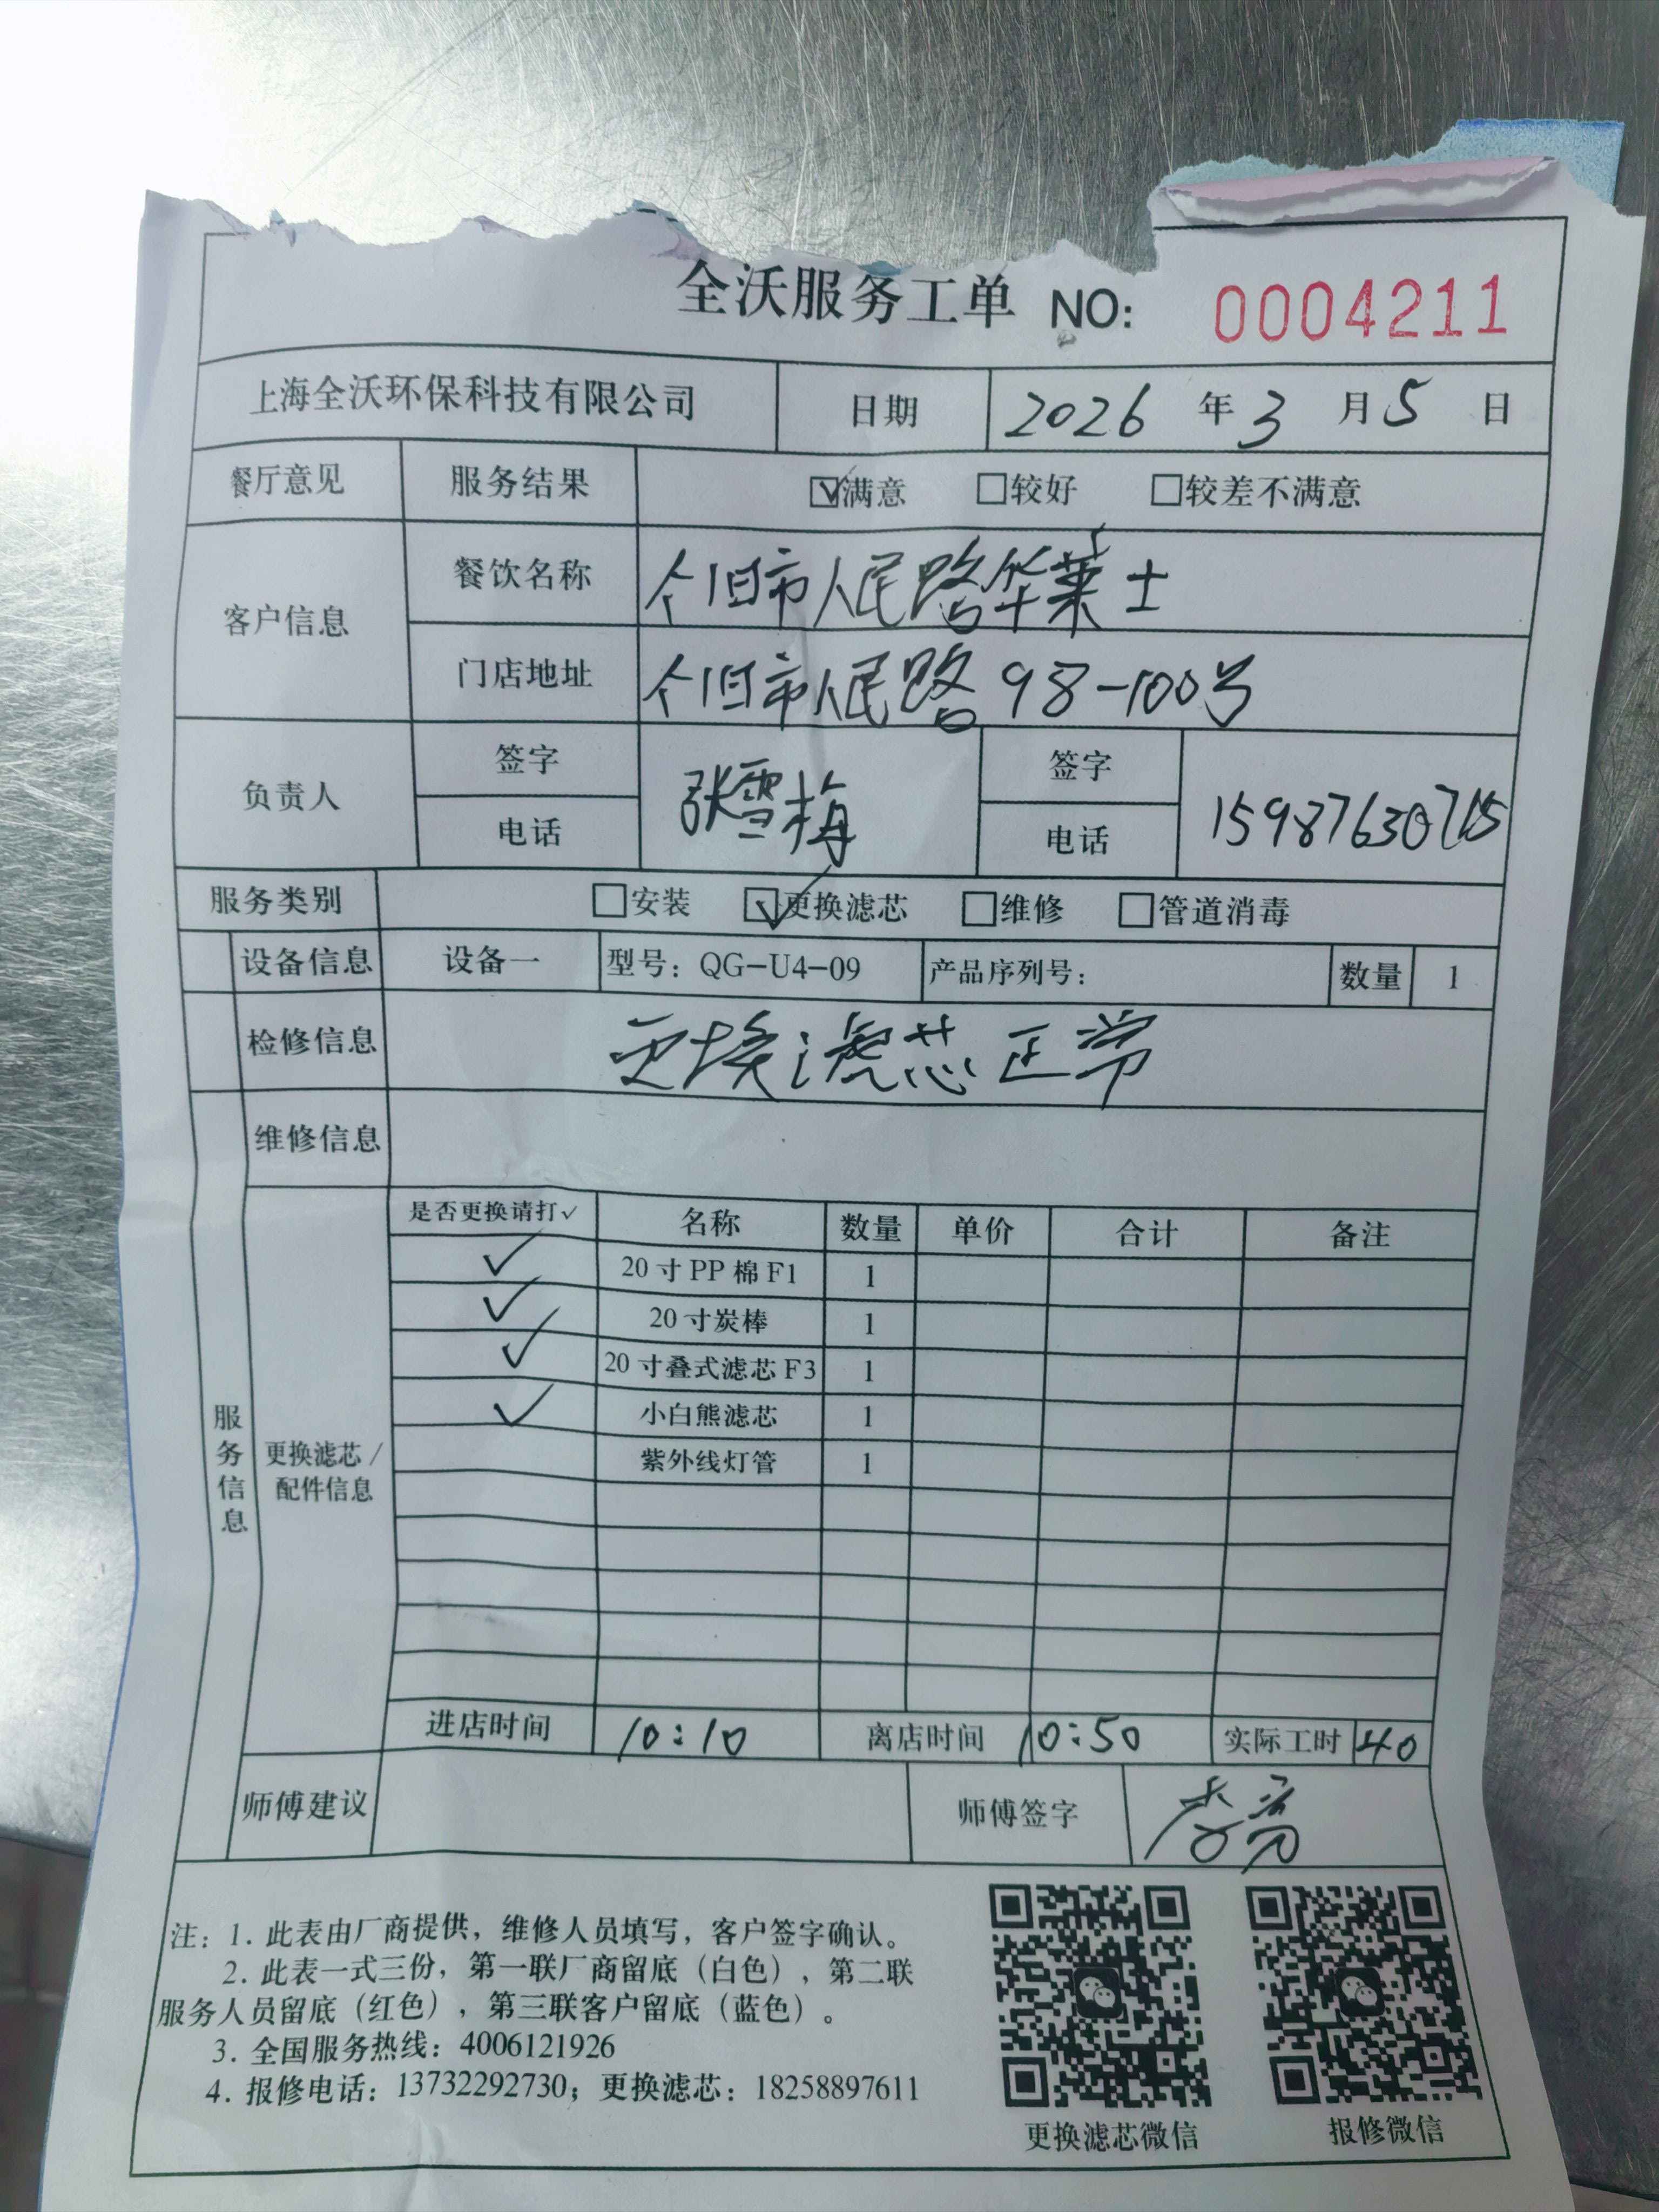 全沃服务工单 NO: 0004211
上海全沃环保科技有限公司 日期 2026 年 3 月 5 日
餐厅意见 服务结果 ☑满意 □较好 □较差不满意
客户信息 餐饮名称 个旧市人民路华莱士
门店地址 个旧市人民路98-100号
负责人 签字 张雪梅 签字
电话 电话
服务类别 □安装 ☑更换滤芯 □维修 □管道消毒
设备信息 设备一 型号：QG-U4-09 产品序列号： 数量 1
检修信息 更换滤芯正常
维修信息
服务信息
更换滤芯/
配件信息
是否更换请打✓ 名称 数量 单价 合计 备注
✓ 20寸PP棉F1 1
✓ 20寸炭棒 1
✓ 20寸叠式滤芯F3 1
✓ 小白熊滤芯 1
紫外线灯管 1
进店时间 10:10 离店时间 10:50 实际工时 40
师傅建议 师傅签字 李亮
注：1. 此表由厂商提供，维修人员填写，客户签字确认。
2. 此表一式三份，第一联厂商留底（白色），第二联
服务人员留底（红色），第三联客户留底（蓝色）。
3. 全国服务热线：4006121926
4. 报修电话：13732292730；更换滤芯：18258897611
更换滤芯微信 报修微信